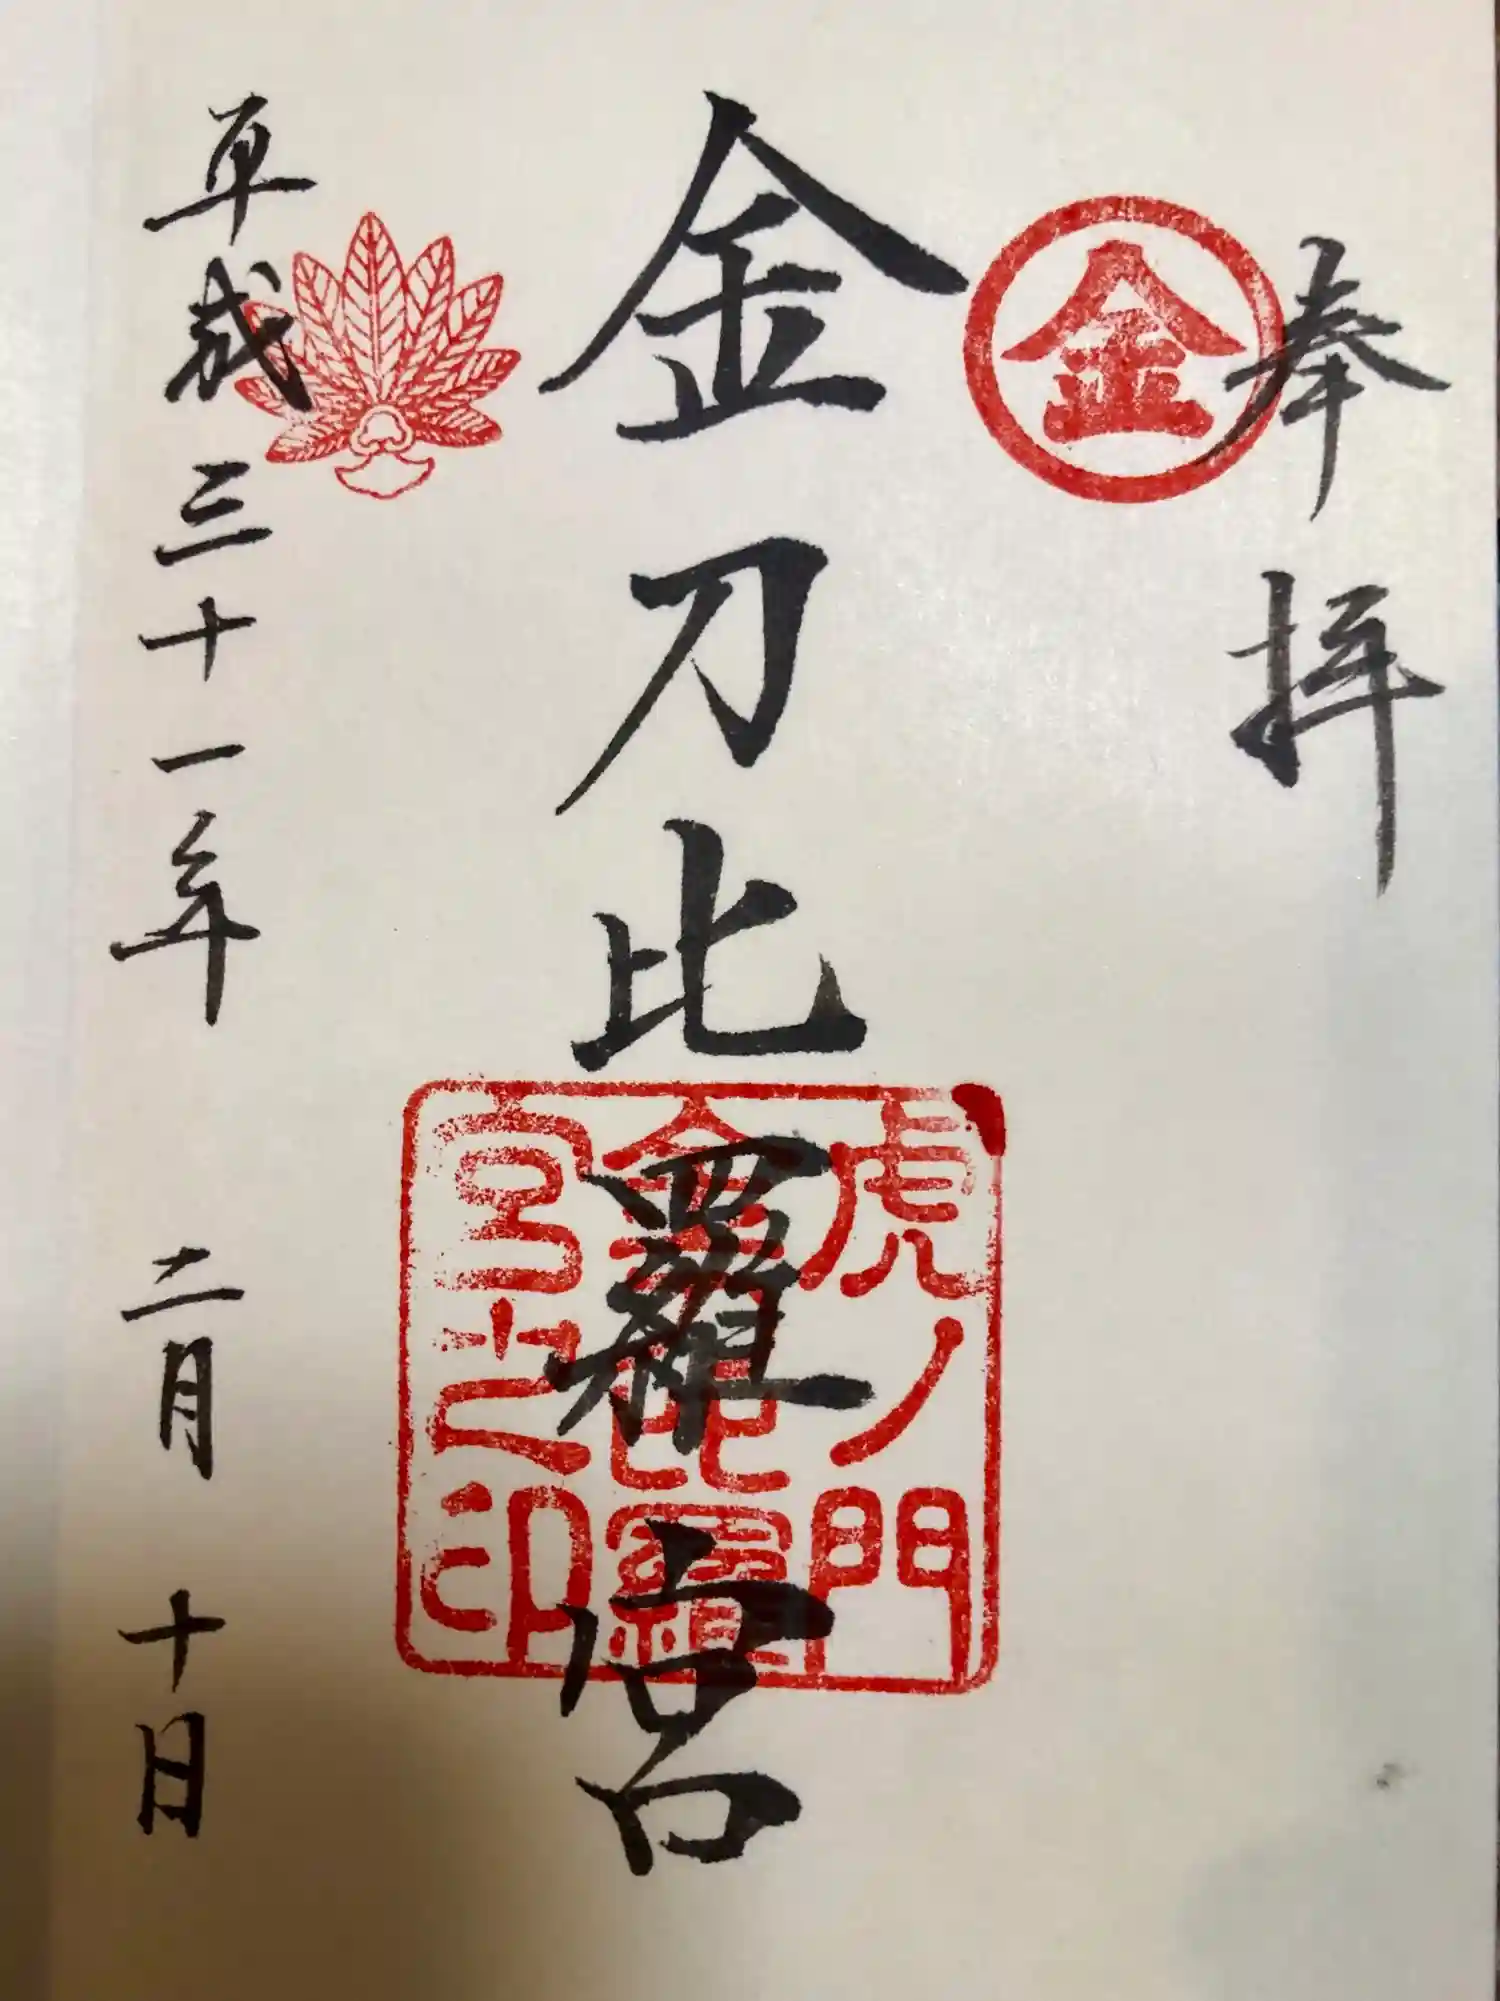 奉拝
金
金刀比羅宮
虎ノ門
金刀比羅
宮之印
平成三十一年 二月 十日